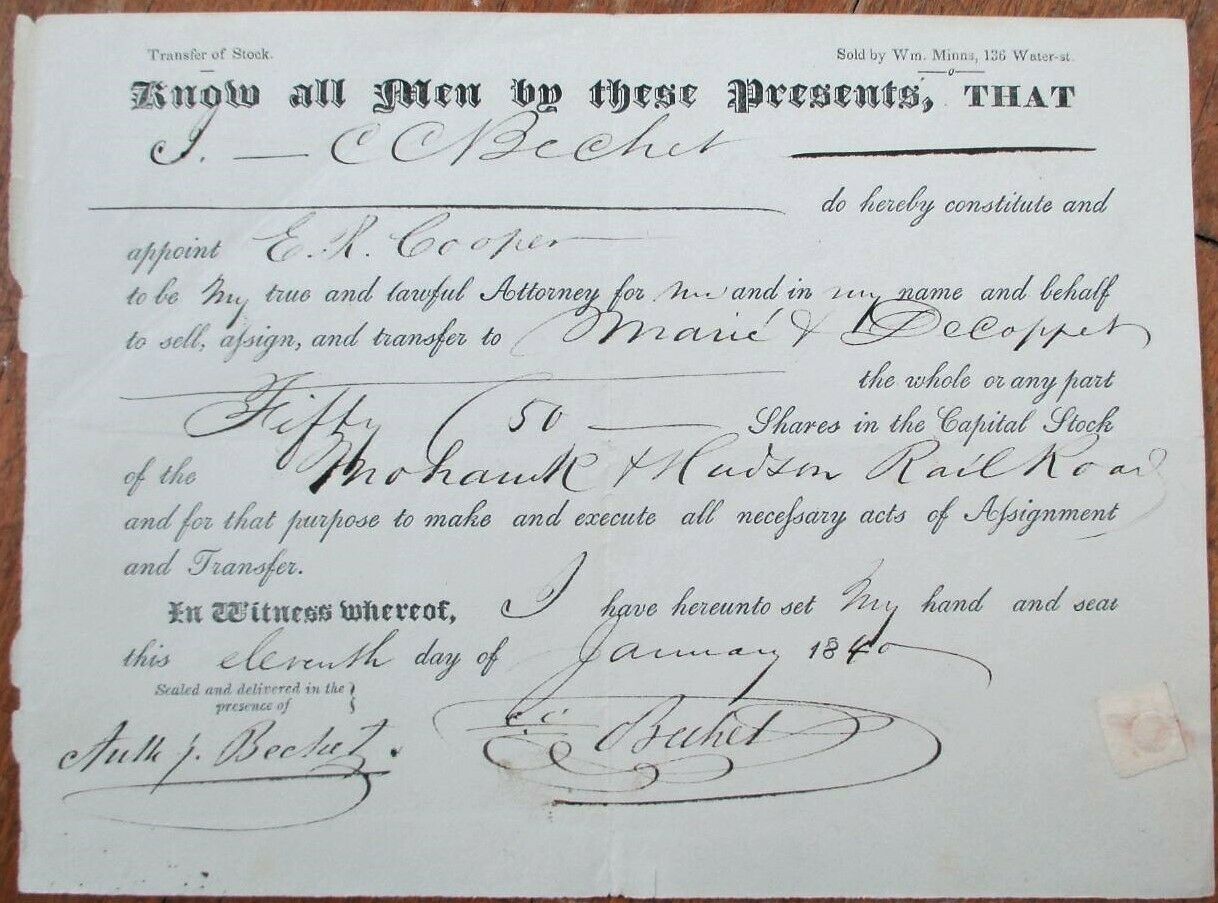 Transfer of Stock.
Sold by Wm. Minns, 136 Water-st.
Know all Men by these Presents, THAT
I. — C C Bechet
do hereby constitute and
appoint E. R. Cooper
to be My true and lawful Attorney for me and in my name and behalf
to sell, aſsign, and transfer to Marié & DeCoppet
the whole or any part
Fifty (50 — Shares in the Capital Stock
of the Mohawk & Hudson Rail Road
and for that purpose to make and execute all neceſsary acts of Aſsignment
and Transfer.
In Witness whereof, I have hereunto set My hand and seal
this eleventh day of January 1840
Sealed and delivered in the
presence of
C C Bechet
Anth J. Bechet.